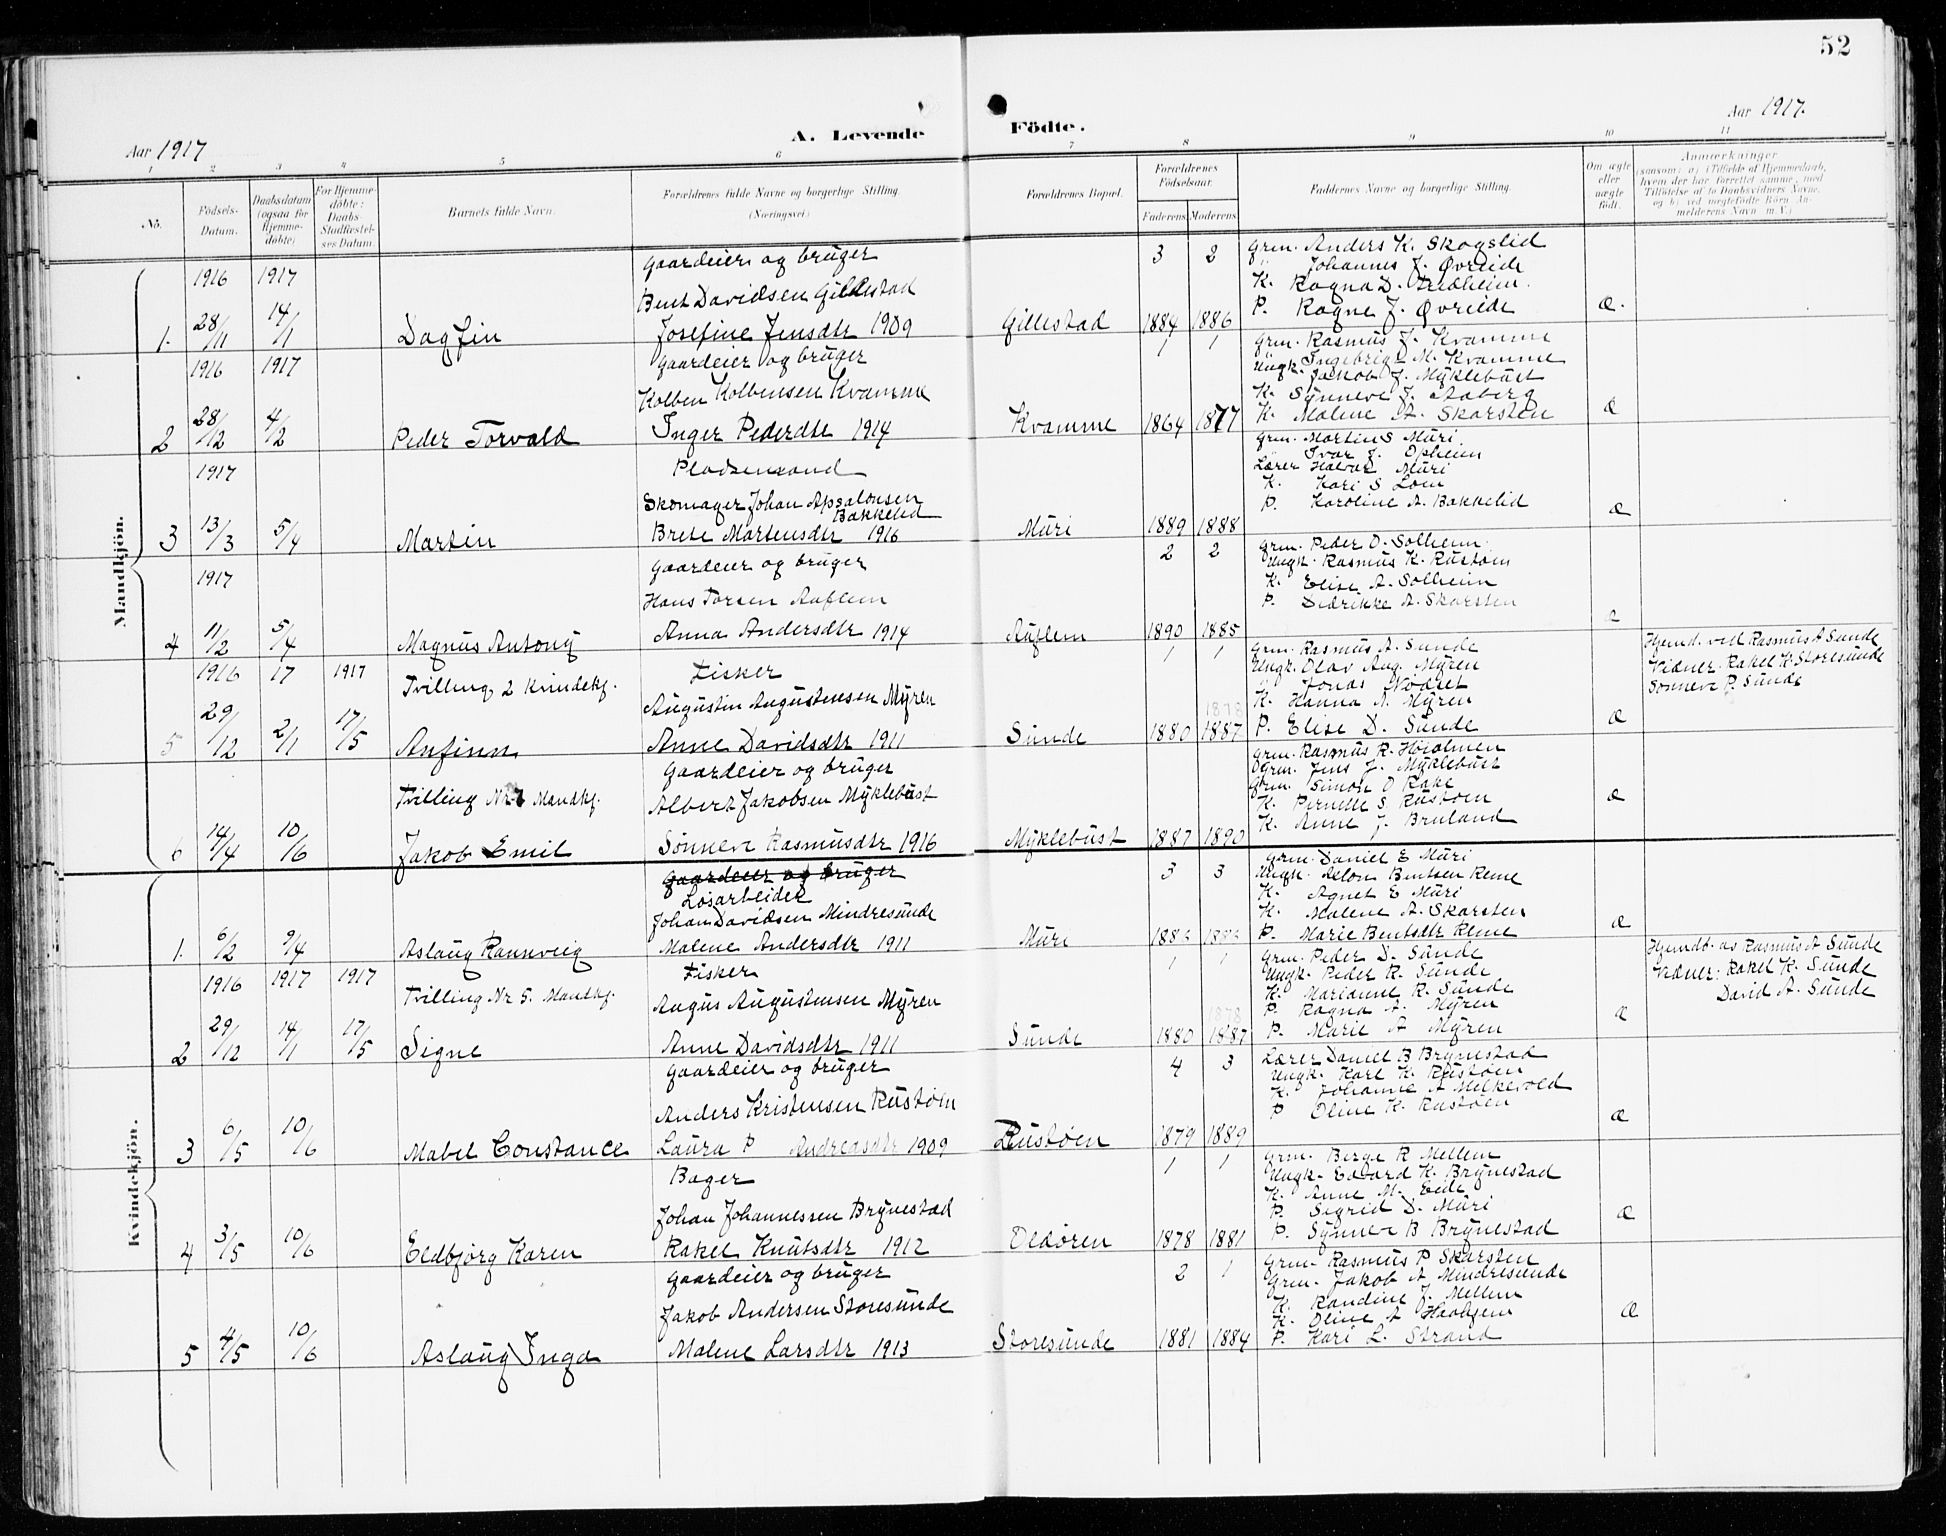 52
Aar 1917
A. Levende
Födte.
Aar 1917.
1 2 3 4 5 6 7 8 9 10 11
No.
Födsels-
Datum.
Daabsdatum
(ogsaa for
Hjemme-
döbte)
For Hjemme-
döbte:
Daabs-
Stadfæstel-
ses Datum.
Barnets fulde Navn.
Forældrenes fulde Navne og borgerlige Stilling.
(Næringsvei)
Forældrenes Bopæl.
Forældrenes
Födselsaar.
Faderens Moderens
Faddernes Navne og borgerlige Stilling.
Om ægte
eller
uægte
født.
Anmærkninger
(saasom: a) i Tilfælde af Hjemmedaab,
hvem der har forrettet samme, med
Tilföielse af to Daabsvidners Navne,
og b) ved uægtefödte Börn An-
melderens Navn m. V.)
Mandkjön.
1916 1917
28/11 14/1
1. Dagfin
Gaardeier og bruger
Bent Davidsen Gillestad
Josefine Jensdtr 1909
Gillestad
3 2
1884 1886
Grm. Anders K. Skogslid
" Johannes J. Øvreide
K. Ragna D. Andheim.
P. Ragne J. Øvreide
Æ.
1916 1917
2 28/12 4/2
Peder Torvald
Gaardeier og bruger
Kolben Kolbensen Kvamme
Inger Pedersdtr 1914
Kvamme
1 1
1864 1877
Grm. Rasmus J. Kvamme
Ungk. Ingebrigt M. Kvamme
" Jakob J. Myklebust
K. Synneve J. Aaberg
K. Malene A. Skarsten
Æ
1917
3 13/3 5/4
Martin
Pladsensand
Skomager Johan Apsalonsen
Bakkelid
Brete Martensdtr 1916
Muri
1889 1888
Grm. Morten S Muri.
" Ivar J. Opheim
Lærer Halvar Muri
K. Kari S Loen
P. Karoline A. Bakkelid
Æ
1917
4 11/2 5/4
Magnus Antony
Gaardeier og bruger
Hans Torsen Auflem
Anna Andersdtr 1914
Auflem
2 2
1890 1885
Grm. Peder D. Solheim.
Ungk. Rasmus K. Rustøen
K. Elise A. Solheim
P. Didrikke A. Skarsten
Æ
1916 17 1917
5 29/12 2/1 17/5
Tvilling 2 Kvindekj.
Anfinn
Fisker
Augustin Augustensen Myren
Anne Davidsdtr 1911
Sunde
1 1
1878
1880 1887
Grm. Rasmus A. Sunde
Ungk. Olav Aug. Myren
" Jonas Nødset
K. Hanna A. Myren
P. Elise D. Sunde
Æ
Hjemd. ved Rasmus A Sunde
Vidner. Rakel K. Storesunde
Sønneve P. Sunde
6 14/4 10/6
Tvilling Nr 1 Mandkj.
Jakob Emil
Gaardeier og bruger
Albert Jakobsen Myklebust
Sønneve Rasmusdtr 1916
Myklebust
1887 1890
Grm. Rasmus R. Høialmen
Grm. Jens J. Myklebust
Grm. Simon D Rake
K. Pernelle S. Rustøen
K. Anne J. Bruland
Æ
Kvindekjön.
1. 6/2 9/4
Aslaug Rannveig
Gaardeier og bruger
Løsarbeider
Johan Davidsen Mindresunde
Malene Andersdtr 1911
Muri
3 3
Grm. Daniel E Muri
Ungk. Aslon Bentsen Rene
K. Agnet E Muri
K. Malene A. Skarsten
P. Marie Bentsdtr Rene
Æ
1916 1917 1917
2 29/12 14/1 17/5
Tvilling Nr 5. Mandkj.
Signe
Fisker
Augus Augustensen Myren
Anne Davidsdtr 1911
Sunde
1 1
1878
1880 1887
Grm. Peder D. Sunde
Ungk. Peder R. Sunde
K. Marianne R. Sunde
P. Ragna A. Myren
P. Marie A Myren
Æ
Hjemdb. av Rasmus A Sunde
Vidner: Rakel K. Sunde
David A. Sunde
3 6/5 10/6
Mabel Constance
Gaardeier og bruger
Anders Kristensen Rustøen
Laura P Andreasdtr 1909
Rustøen
4 3
1879 1889
Lærer Daniel B Brynestad
Ungk. Karl K. Rustøen
K. Johanne A Melkevold
P Oline K. Rustøen
Æ
4 3/5 10/6
Eldbjørg Karen
Bager
Johan Johannessen Brynestad
Rakel Knutsdtr 1912
Oldøren
1 1
1878 1881
Grm. Berge R Mellem
Ungk. Edvard K. Brynestad
K. Anne M. Eide
P. Sigrid D. Muri
P. Synneve B Brynestad
Æ
5 4/5 10/6
Aslaug Inga
Gaardeier og bruger
Jakob Andersen Storesunde
Malene Larsdtr 1913
Storesunde
2 1
1881 1884
Grm. Rasmus P Skarsten
Grm. Jakob A Mindresunde
K. Randine J. Mellem
K. Oline A Haahjem
P. Kari L. Strand
Æ